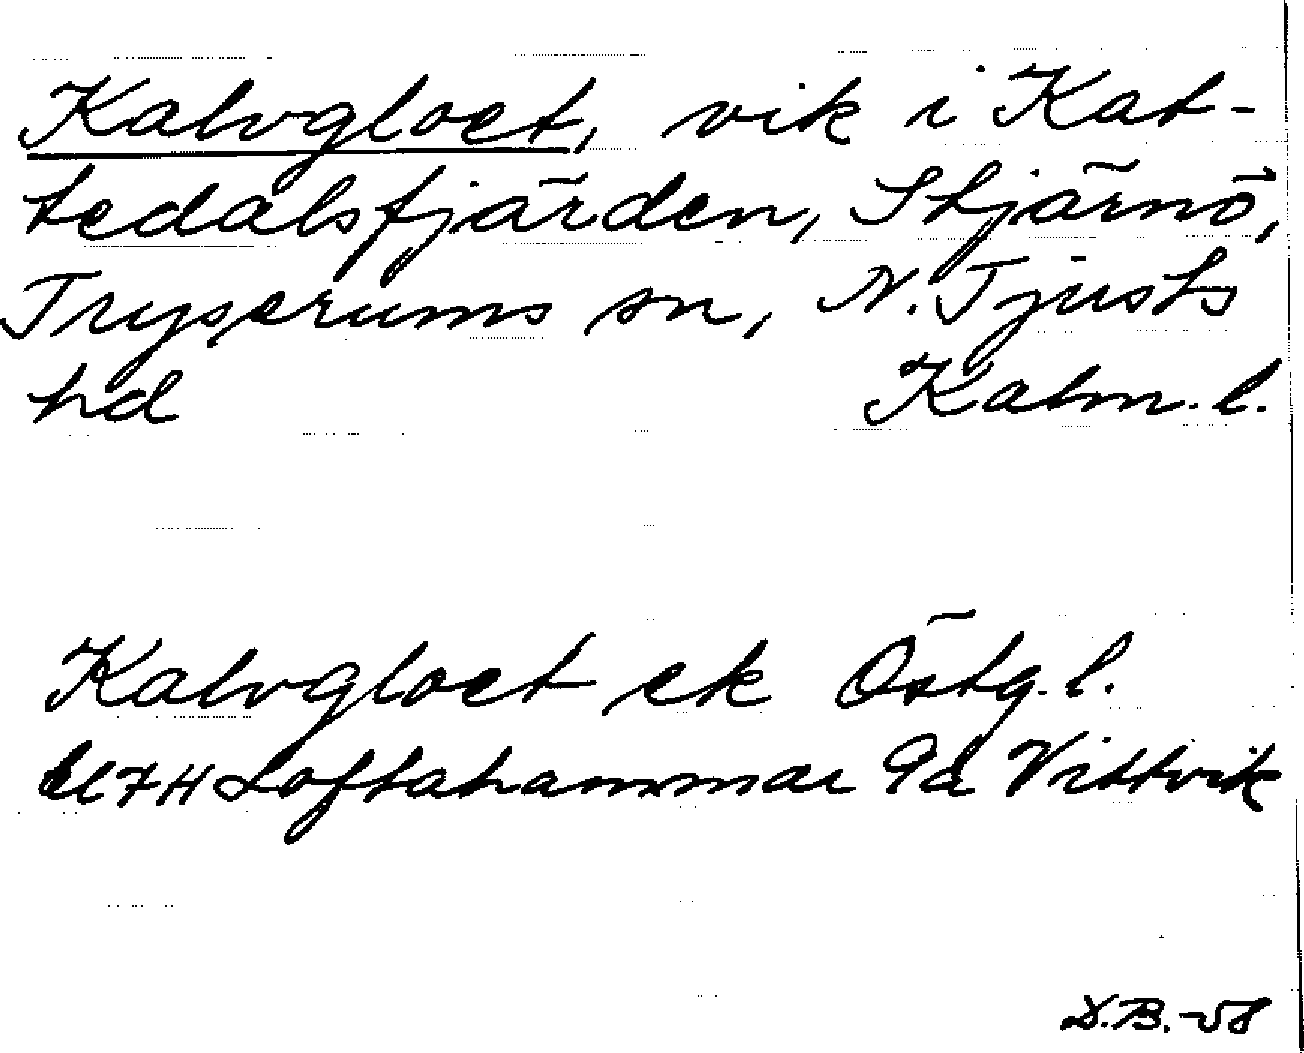 Kalvgloet, vik i Kat-
tedalsfjärden, Stjärnö,
Tryserums sn, N. Tjusts
hd Kalm. l.
Kalvgloet ek Östg. l.
7H Loftahammar 9d Vittvik
D.B. -58